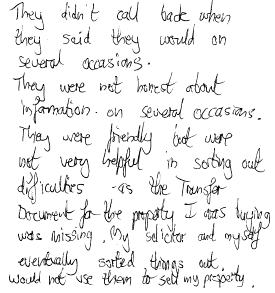 They didn't call back when
they said they would on
several occasions.
They were not honest about
information on several occasions.
They were friendly but were
not very helpful in sorting out
difficulties - as the Transfer
Document for the property I was buying
was missing. My solicitor and myself
eventually sorted things out.
would not use them to sell my property.